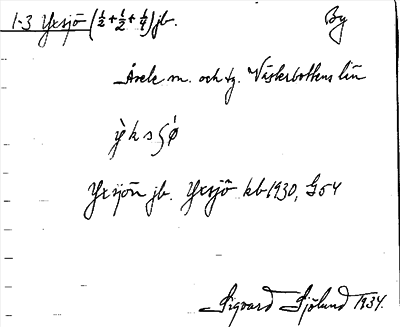 1-3 Yxsjö (½+½+¼) jb. By
Åsele sn. och tg. Västerbottens län
Yxsjön jb. Yxsjö kb 1930, G54
Sigvard Sjölund 1934.